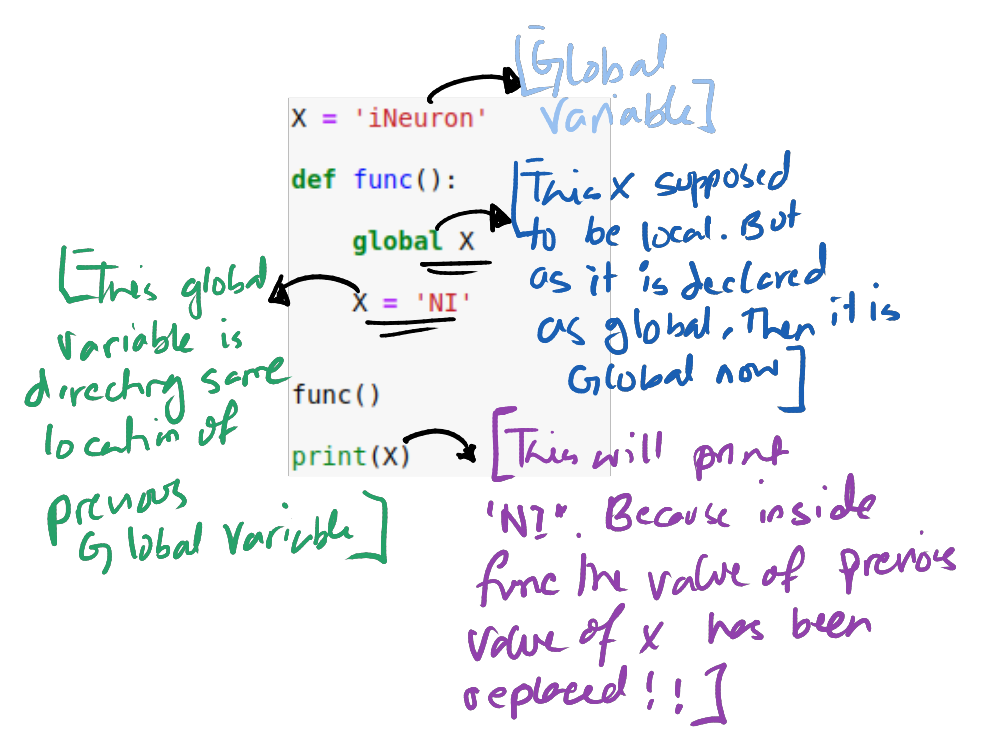 [Global
variable]
X = 'iNeuron'
def func():
global X
X = 'NI'
func()
print(X)
[This X supposed
to be local. But
as it is declared
as global, Then it is
Global now]
[This global
variable is
directing same
location of
previous
Global Variable]
[This will print
'NI'. Because inside
func the value of previous
value of x has been
replaced!!]